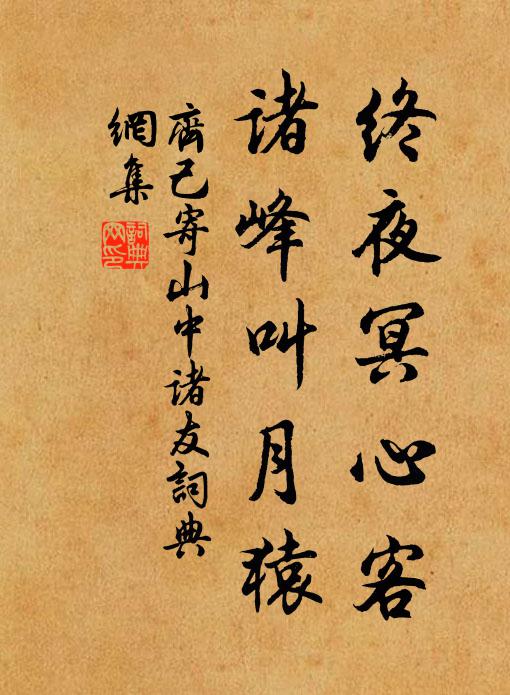 終夜冥心客
諸峰叫月猿
齊己寄山中諸友詞典
網集
詞典
网印